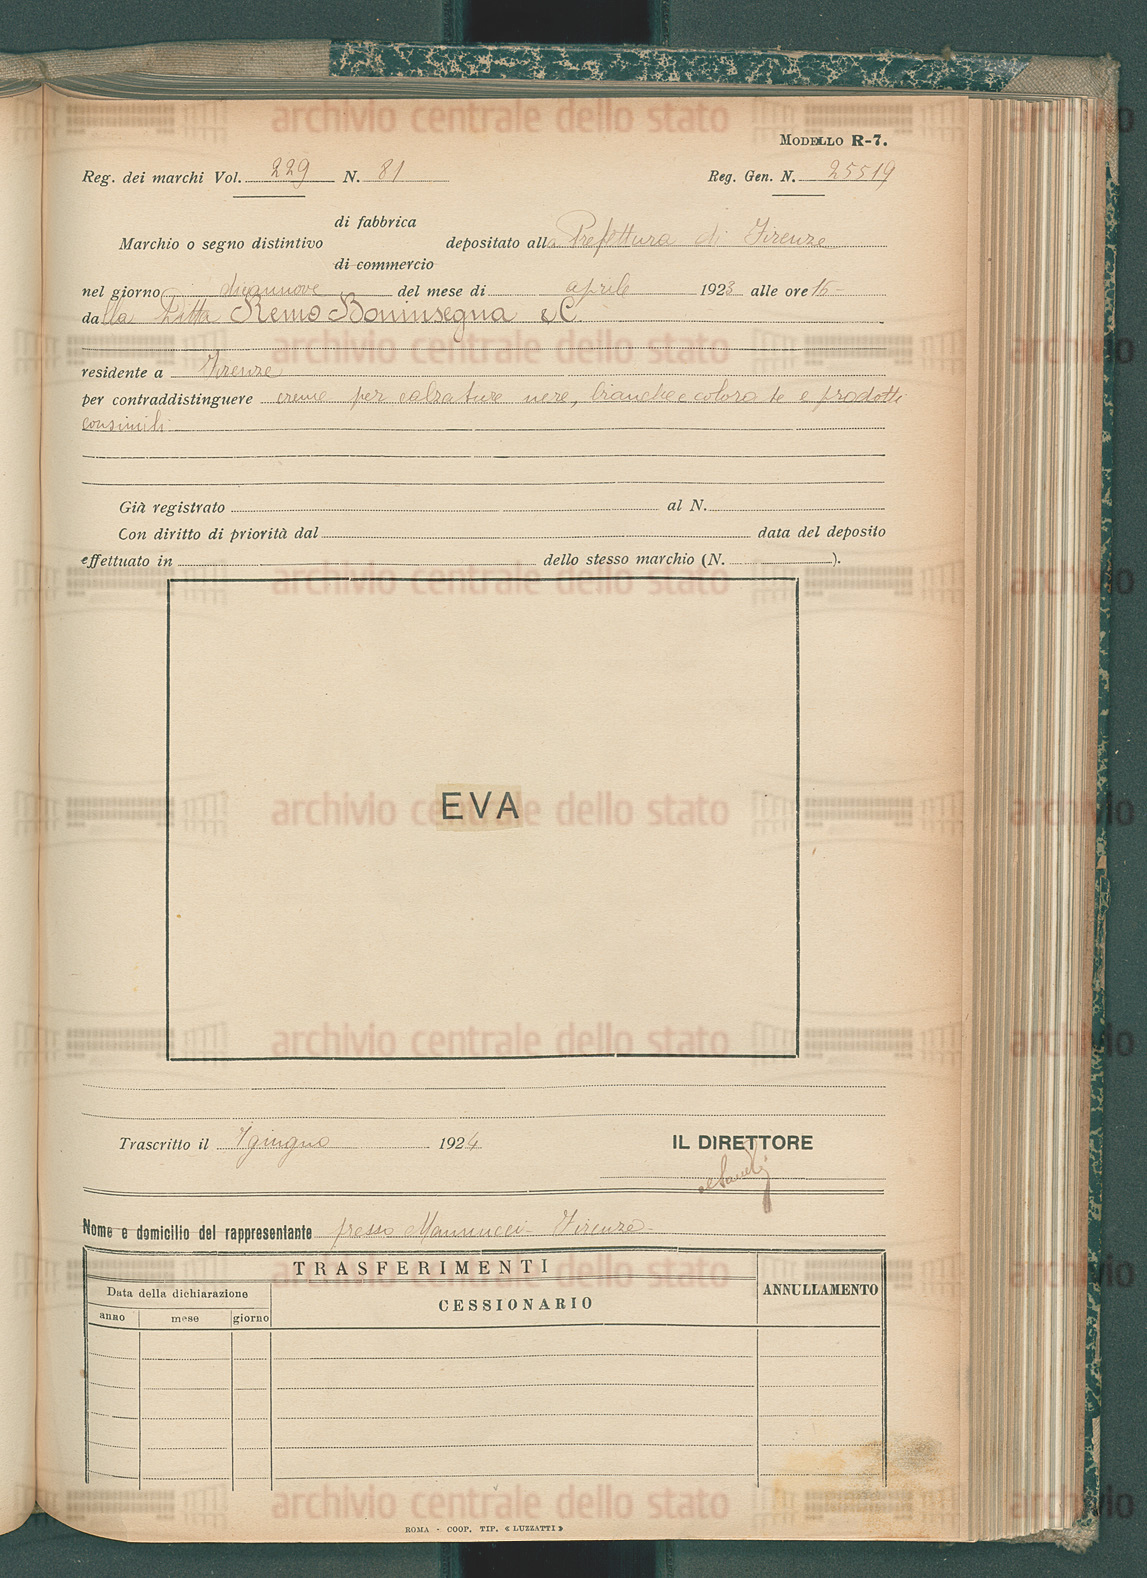 MODELLO R-7.
Reg. dei marchi Vol. 229 N. 81 Reg. Gen. N. 25519
di fabbrica
Marchio o segno distintivo depositato alla Prefettura di Firenze
di commercio
nel giorno diciannove del mese di aprile 1923 alle ore 16
dalla Ditta Remo Boninsegna & C.
residente a Firenze
per contraddistinguere creme per calzature nere, bianche e colorate e prodotti
consimili.
Già registrato al N.
Con diritto di priorità dal data del deposito
effettuato in dello stesso marchio (N. ).
EVA
Trascritto il 7 giugno 1924 IL DIRETTORE
Nome e domicilio del rappresentante presso Mannucci - Firenze -
TRASFERIMENTI
Data della dichiarazione CESSIONARIO ANNULLAMENTO
anno mese giorno
ROMA - COOP. TIP. « LUZZATTI »
archivio centrale dello stato